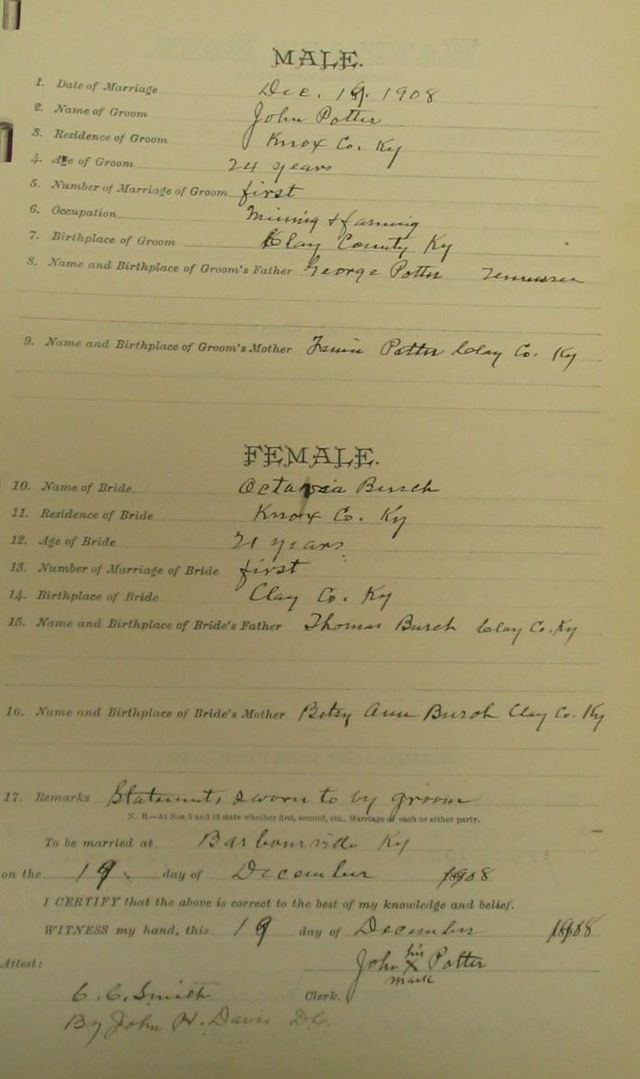 MALE.
1. Date of Marriage Dec. 19, 1908
2. Name of Groom John Potter
3. Residence of Groom Knox Co. Ky
4. Age of Groom 24 years
5. Number of Marriage of Groom first
6. Occupation Mining & farming
7. Birthplace of Groom Clay County Ky
8. Name and Birthplace of Groom's Father George Potter Tennessee
9. Name and Birthplace of Groom's Mother Potter Clay Co. Ky
FEMALE.
10. Name of Bride Octavia Burch
11. Residence of Bride Knox Co. Ky
12. Age of Bride 21 years
13. Number of Marriage of Bride first
14. Birthplace of Bride Clay Co. Ky
15. Name and Birthplace of Bride's Father Thomas Burch Clay Co. Ky
16. Name and Birthplace of Bride's Mother Betsy Ann Burch Clay Co. Ky
17. Remarks Statements sworn to by groom
N. B.—At Nos 5 and 13 state whether first, second, etc., Marriage of each or either party.
To be married at Barbourville Ky
on the 19 day of December 1908
I CERTIFY that the above is correct to the best of my knowledge and belief.
WITNESS my hand, this 19 day of December 1908
his
John X Potter
mark
Attest:
C. C. Smith Clerk.
By John H. Davis D.C.